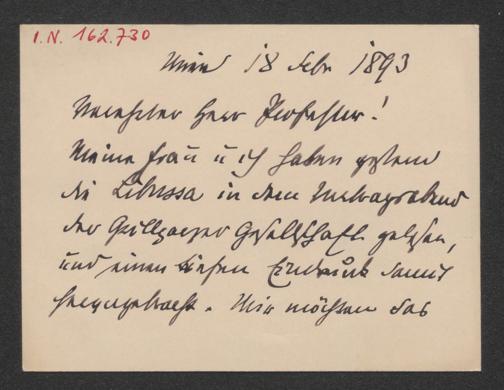 I.N. 162.730
Wien 18 Febr 1893
Verehrter Herr Professor!
Meine Frau u ich haben gestern
die Libussa in dem Vortragsabend
der Grillparzer Gesellschaft gelesen,
und einen tiefen Eindruck damit
hervorgebracht. Wir möchten das